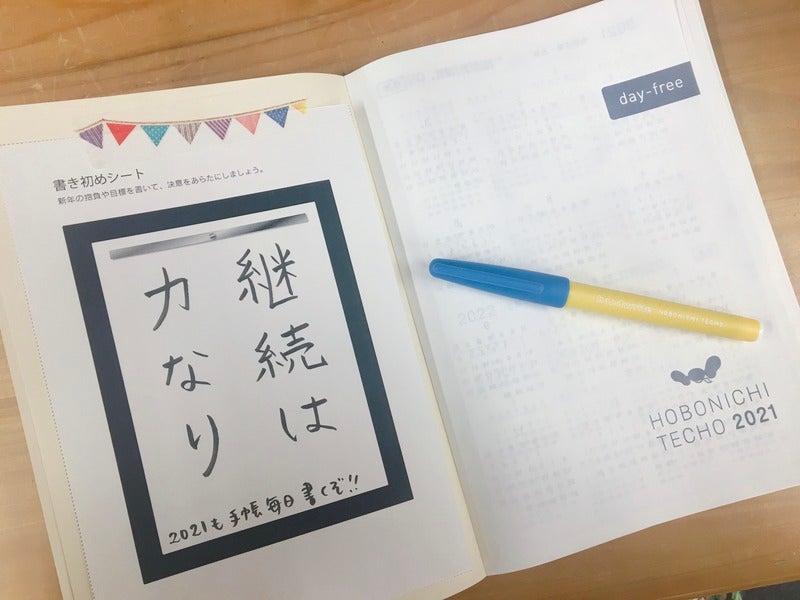 書き初めシート
新年の抱負や目標を書いて、決意をあらたにしましょう。
継続は
力なり
2021も手帳毎日書くぞ!!
day-free
HOBONICHI
TECHO 2021